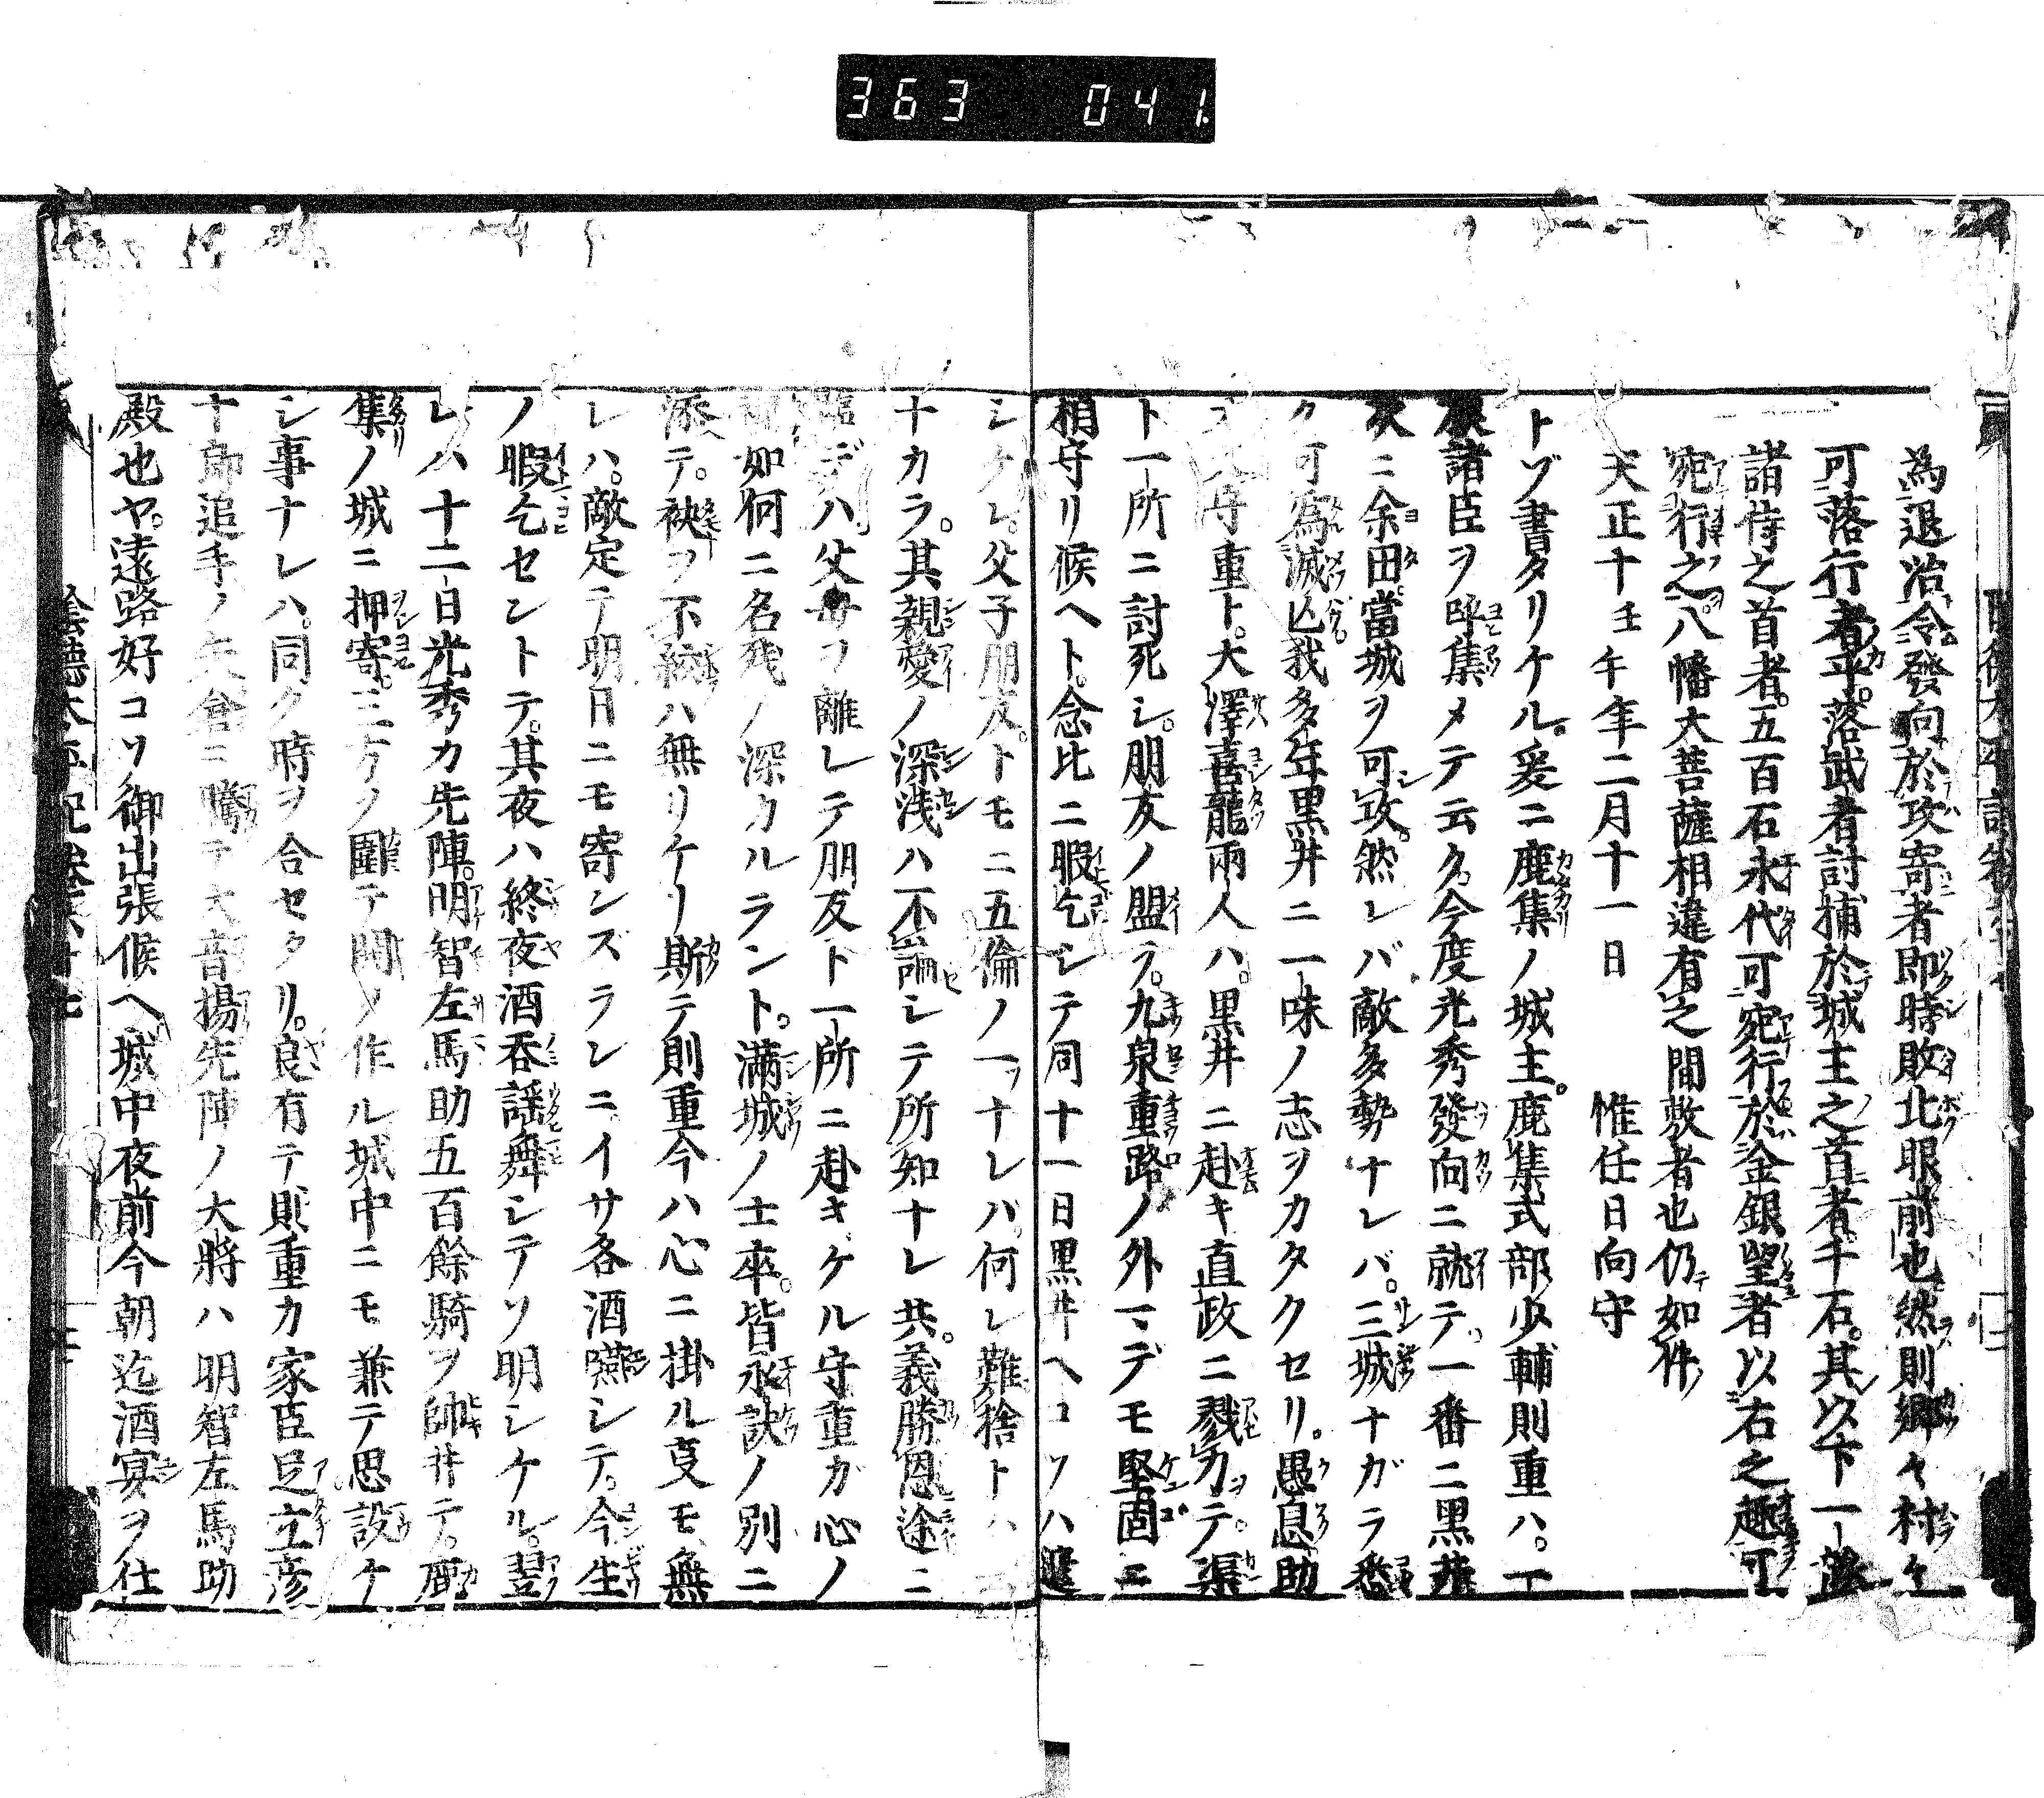 363 041
為退治令發向於攻寄者即時敗北眼前也然則郷々村々
可落行者乎落武者討捕於城主之首者千石其以下一
諸侍之首者五百石永代可宛行於金銀望者以右之趣可
宛行之八幡大菩薩相違有之間敷者也仍如件
天正十壬午年二月十一日 惟任日向守
トゾ書タリケル爰ニ鹿集ノ城主鹿集式部少輔則重ハ一
族諸臣ヲ呼集メテ云ク今度光秀發向ニ就テ一番ニ黒井
次ニ余田當城ヲ可攻然レバ敵多勢ナレバ三城ナガラ悉
ク可為滅亡我多年黒井ニ一味ノ志ヲカタクセリ愚息助
守重ト大澤喜龍兩人ハ黒井ニ赴キ直政ニ戮力テ渠
ト一所ニ討死シ朋友ノ盟ヲ九泉重路ノ外マデモ堅固ニ
相守リ候ヘト念比ニ暇乞シテ同十一日黒井ヘコソハ遣
シケレ父子朋友トモニ五倫ノ一ツナレバ何レ難捨トハ
ナカラ其親愛ノ深浅ハ不論シテ所知ナレ共義勝恩途ニ
臨デハ父母ヲ離レテ朋友ト一所ニ赴キケル守重ガ心ノ
如何ニ名残ノ深カルラント満城ノ士卒皆永訣ノ別ニ
添テ袂ヲ不絞ハ無リケリ斯テ則重今ハ心ニ掛ル叓モ無
レハ敵定テ明日ニモ寄ンズランニイサ各酒燕シテ今生
ノ暇乞セントテ其夜ハ終夜酒呑謡舞シテソ明シケル翌
レハ十二日光秀カ先陣明智左馬助五百餘騎ヲ帥井テ鹿
集ノ城ニ押寄三方ヲ圍テ鬨ヲ作ル城中ニモ兼テ思設ケ
シ事ナレハ同ク時ヲ合セタリ良有テ則重カ家臣足立彦
十郎追手ノ矢倉ニ騰テ大音揚先陣ノ大將ハ明智左馬助
殿也ヤ遠路好コソ御出張候ヘ城中夜前今朝迄酒宴ヲ仕
陰徳太平記巻第廿七